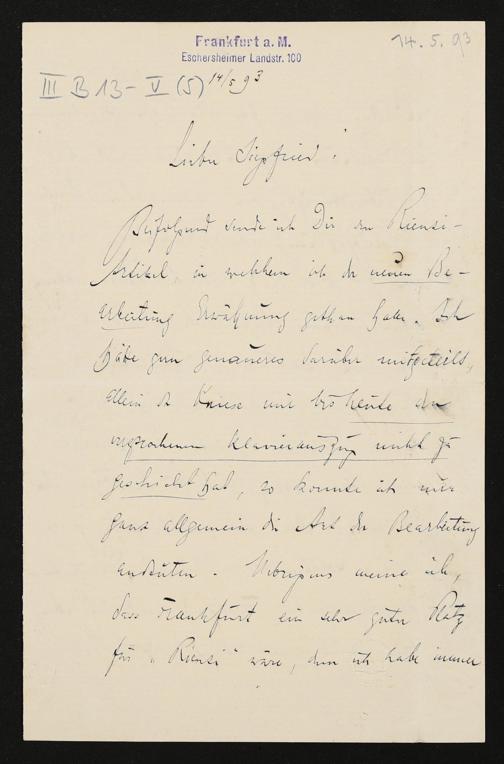 Frankfurt a. M.
Eschersheimer Landstr. 100
14. 5. 93
III B 13 - V (5) 14/5 93
Lieber Siegfried!
Beifolgend sende ich Dir den Rienzi-
Artikel, in welchem ich der neuen Be-
arbeitung Erwähnung gethan habe. Ich
hätte gern genaueres darüber mitgeteilt,
allein da Kniese mir bis heute den
versprochenen Klavierauszug nicht zu
geschickt hat, so konnte ich nur
ganz allgemein die Art der Bearbeitung
andeuten. Uebrigens meine ich,
dass Frankfurt ein sehr guter Platz
für "Rienzi" wäre, denn ich habe immer